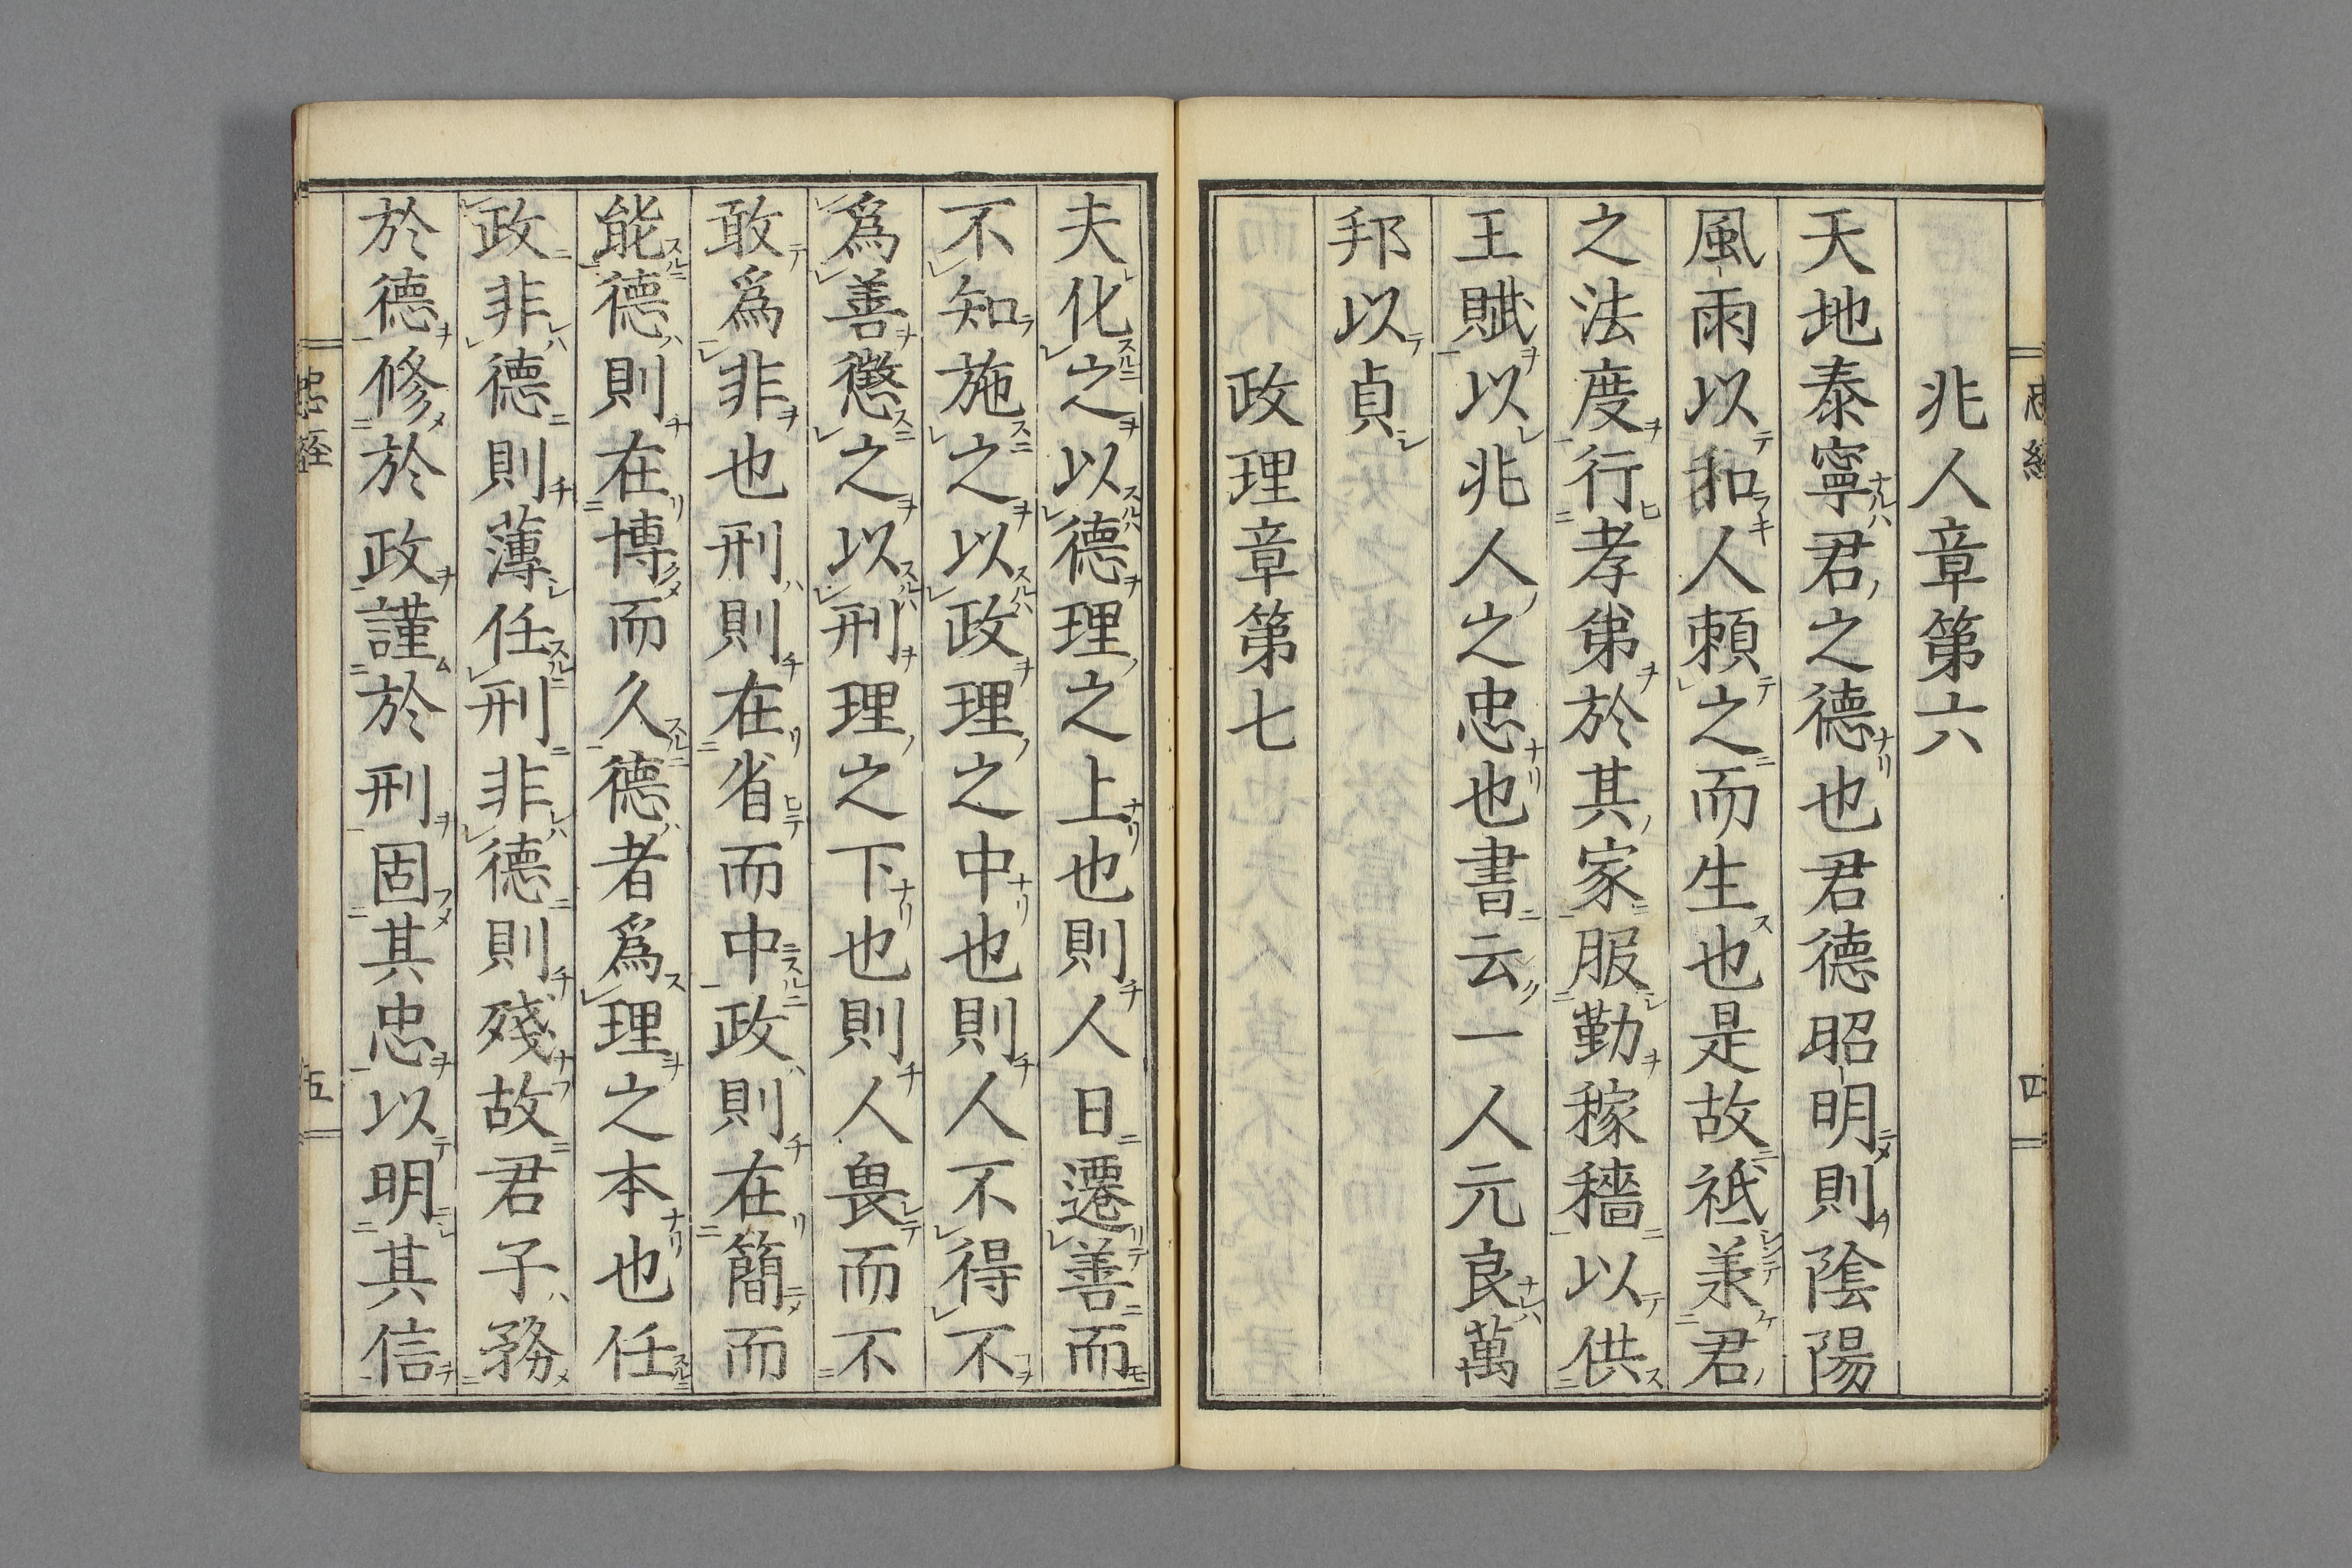 兆人章第六
天地泰寧君之德也君德昭明則陰陽
風雨以和人頼之而生也是故祗羕君
之法度行孝弟於其家服勤稼穡以供
王賦以兆人之忠也書云一人元良萬
邦以貞
政理章第七
夫化之以德理之上也則人日遷善而
不知施之以政理之中也則人不得不
爲善懲之以刑理之下也則人畏而不
敢爲非也刑則在省而中政則在簡而
能德則在博而久德者爲理之本也任
政非德則薄任刑非德則殘故君子務
於德修於政謹於刑固其忠以明其信
忠經
五
四